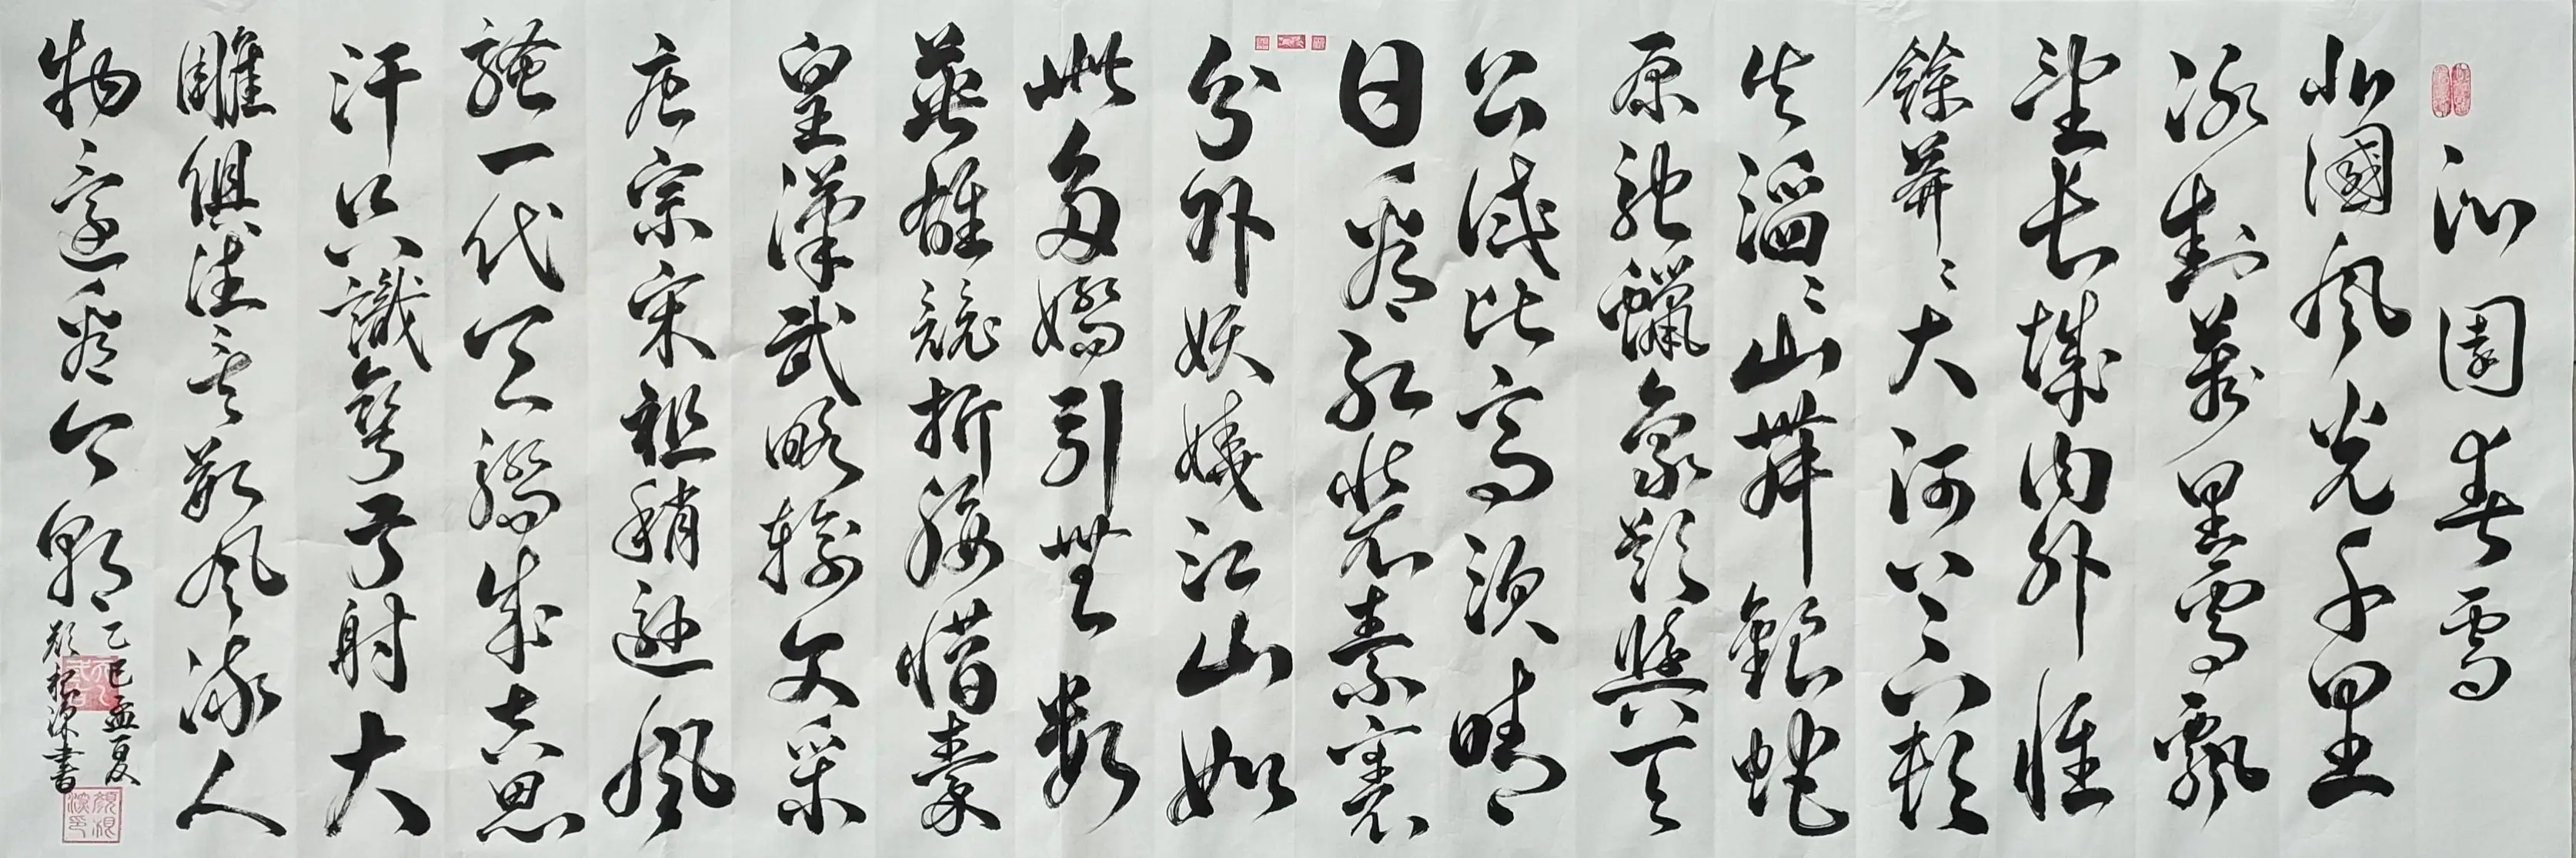 沁園春雪
北國風光千里
冰封萬里雪飄
望長城內外惟
餘莽〻大河上下頓
失滔〻山舞銀蛇
原馳蠟象欲與天
公試比高須晴
日看紅裝素裹
分外妖嬈江山如
此多嬌引無數
英雄競折腰惜秦
皇漢武略輸文采
唐宗宋祖稍遜風
騷一代天驕成吉思
汗只識彎弓射大
雕俱往矣數風流人
物還看今朝
乙巳孟夏
顏根書